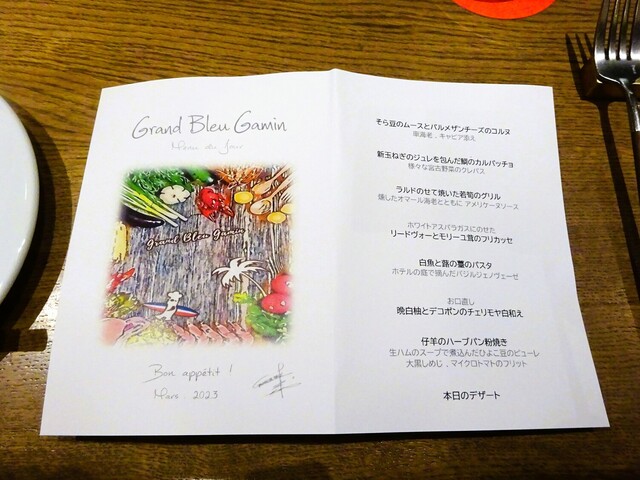 Grand Bleu Gamin
Menu du Jour
Grand Bleu Gamin
Bon appétit !
Mars . 2023
そら豆のムースとパルメザンチーズのコルヌ
車海老 , キャビア添え
新玉ねぎのジュレを包んだ鯛のカルパッチョ
様々な宮古野菜のクレパス
ラルドのせて焼いた若筍のグリル
燻したオマール海老とともに アメリケーヌソース
ホワイトアスパラガスにのせた
リードヴォーとモリーユ茸のフリカッセ
白魚と蕗の薹のパスタ
ホテルの庭で摘んだバジルジェノヴェーゼ
お口直し
晩白柚とデコポンのチェリモヤ白和え
仔羊のハーブパン粉焼き
生ハムのスープで煮込んだひよこ豆のピューレ
大黒しめじ , マイクロトマトのフリット
本日のデザート